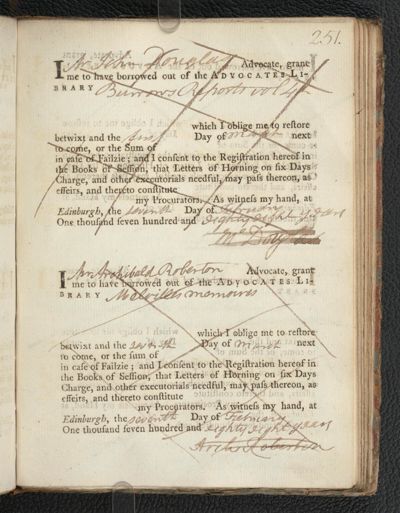 251.
I Mr John Douglas Advocate, grant
me to have borrowed out of the ADVOCATES LI-
BRARY Burrows Reports vol 4th
which I oblige me to restore
betwixt and the Day of March next
to come, or the Sum of
in case of Failzie; and I consent to the Registration hereof in
the Books of Session, that Letters of Horning on six Days
Charge, and other executorials needful, may pass thereon, as
effeirs, and thereto constitute
my Procurators. As witness my hand, at
Edinburgh, the seventh Day of February
One thousand seven hundred and eighty eight years
Douglas
I Mr Archibald Roberton Advocate, grant
me to have borrowed out of the ADVOCATES LI-
BRARY Melvilles memoires
which I oblige me to restore
betwixt and the seventh Day of March next
to come, or the sum of
in case of Failzie; and I consent to the Registration hereof in
the Books of Session, that Letters of Horning on six Days
Charge, and other executorials needful, may pass thereon, as
effeirs, and thereto constitute
my Procurators. As witness my hand, at
Edinburgh, the seventh Day of February
One thousand seven hundred and eighty eight years
Archd Roberton